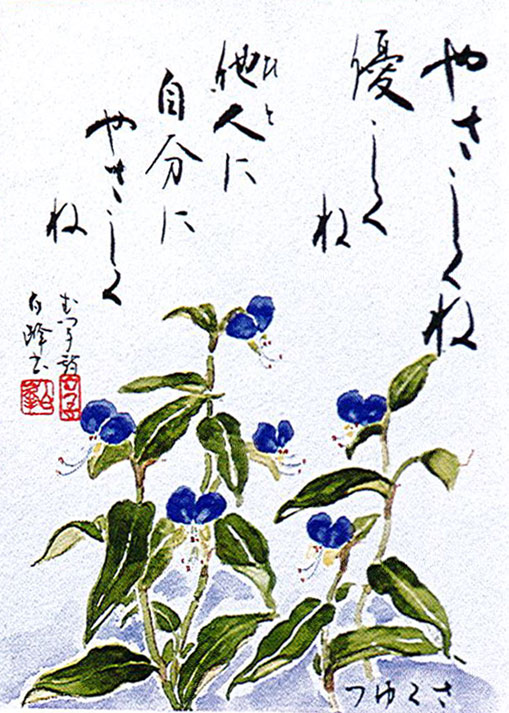 やさしくね
優しくね
他人に
ひと
自分に
やさしくね
白峰書
つゆくさ